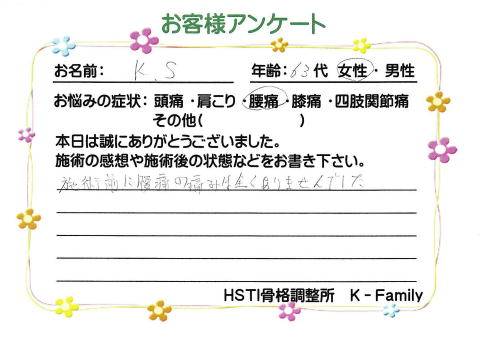 お客様アンケート
お名前： K.S 年齢：63代 女性・男性
お悩みの症状：頭痛・肩こり・腰痛・膝痛・四肢関節痛
その他( )
本日は誠にありがとうございました。
施術の感想や施術後の状態などをお書き下さい。
施術前に腰痛の痛みは全くありませんでした
HSTI骨格調整所 K－Family